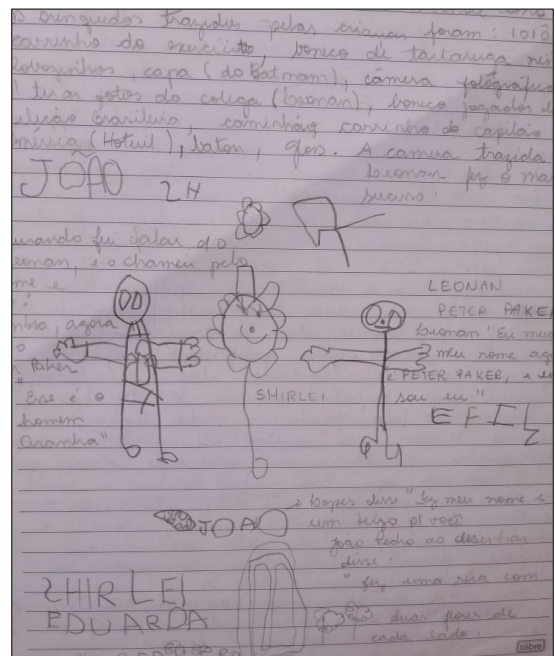 brinquedos trazidos pelas crianças foram: ioiô
carrinho do exercíito, boneco de tartaruga nin
Robozinhos, capa (do Batmam), câmera fotográfica
tirar fotos do colega (Leonan), boneco jogador d
eleição Brasileira, caminhão, carrinho do capitão
mérica (Hotuil), baton, glos. A camera trazida
Leonan fez o mai
JOÃO 2H
quando fui falar do
Leonan, e o chamei pelo
me e
LEONAN
PETER PAKER
Leonan "Eu mud
meu nome ago
é PETER PAKER, e le
sou eu"
nha, agora
o
Paker
"Esse é o
homem
aranha"
SHIRLEI
EFIL
Lopes disse "fiz meu nome e
um beijo p/ você
JOAO
João Pedro ao desenhar
disse:
"fiz uma rua com
duas flores de
cada lado.
SHIRLEI
EDUARDA